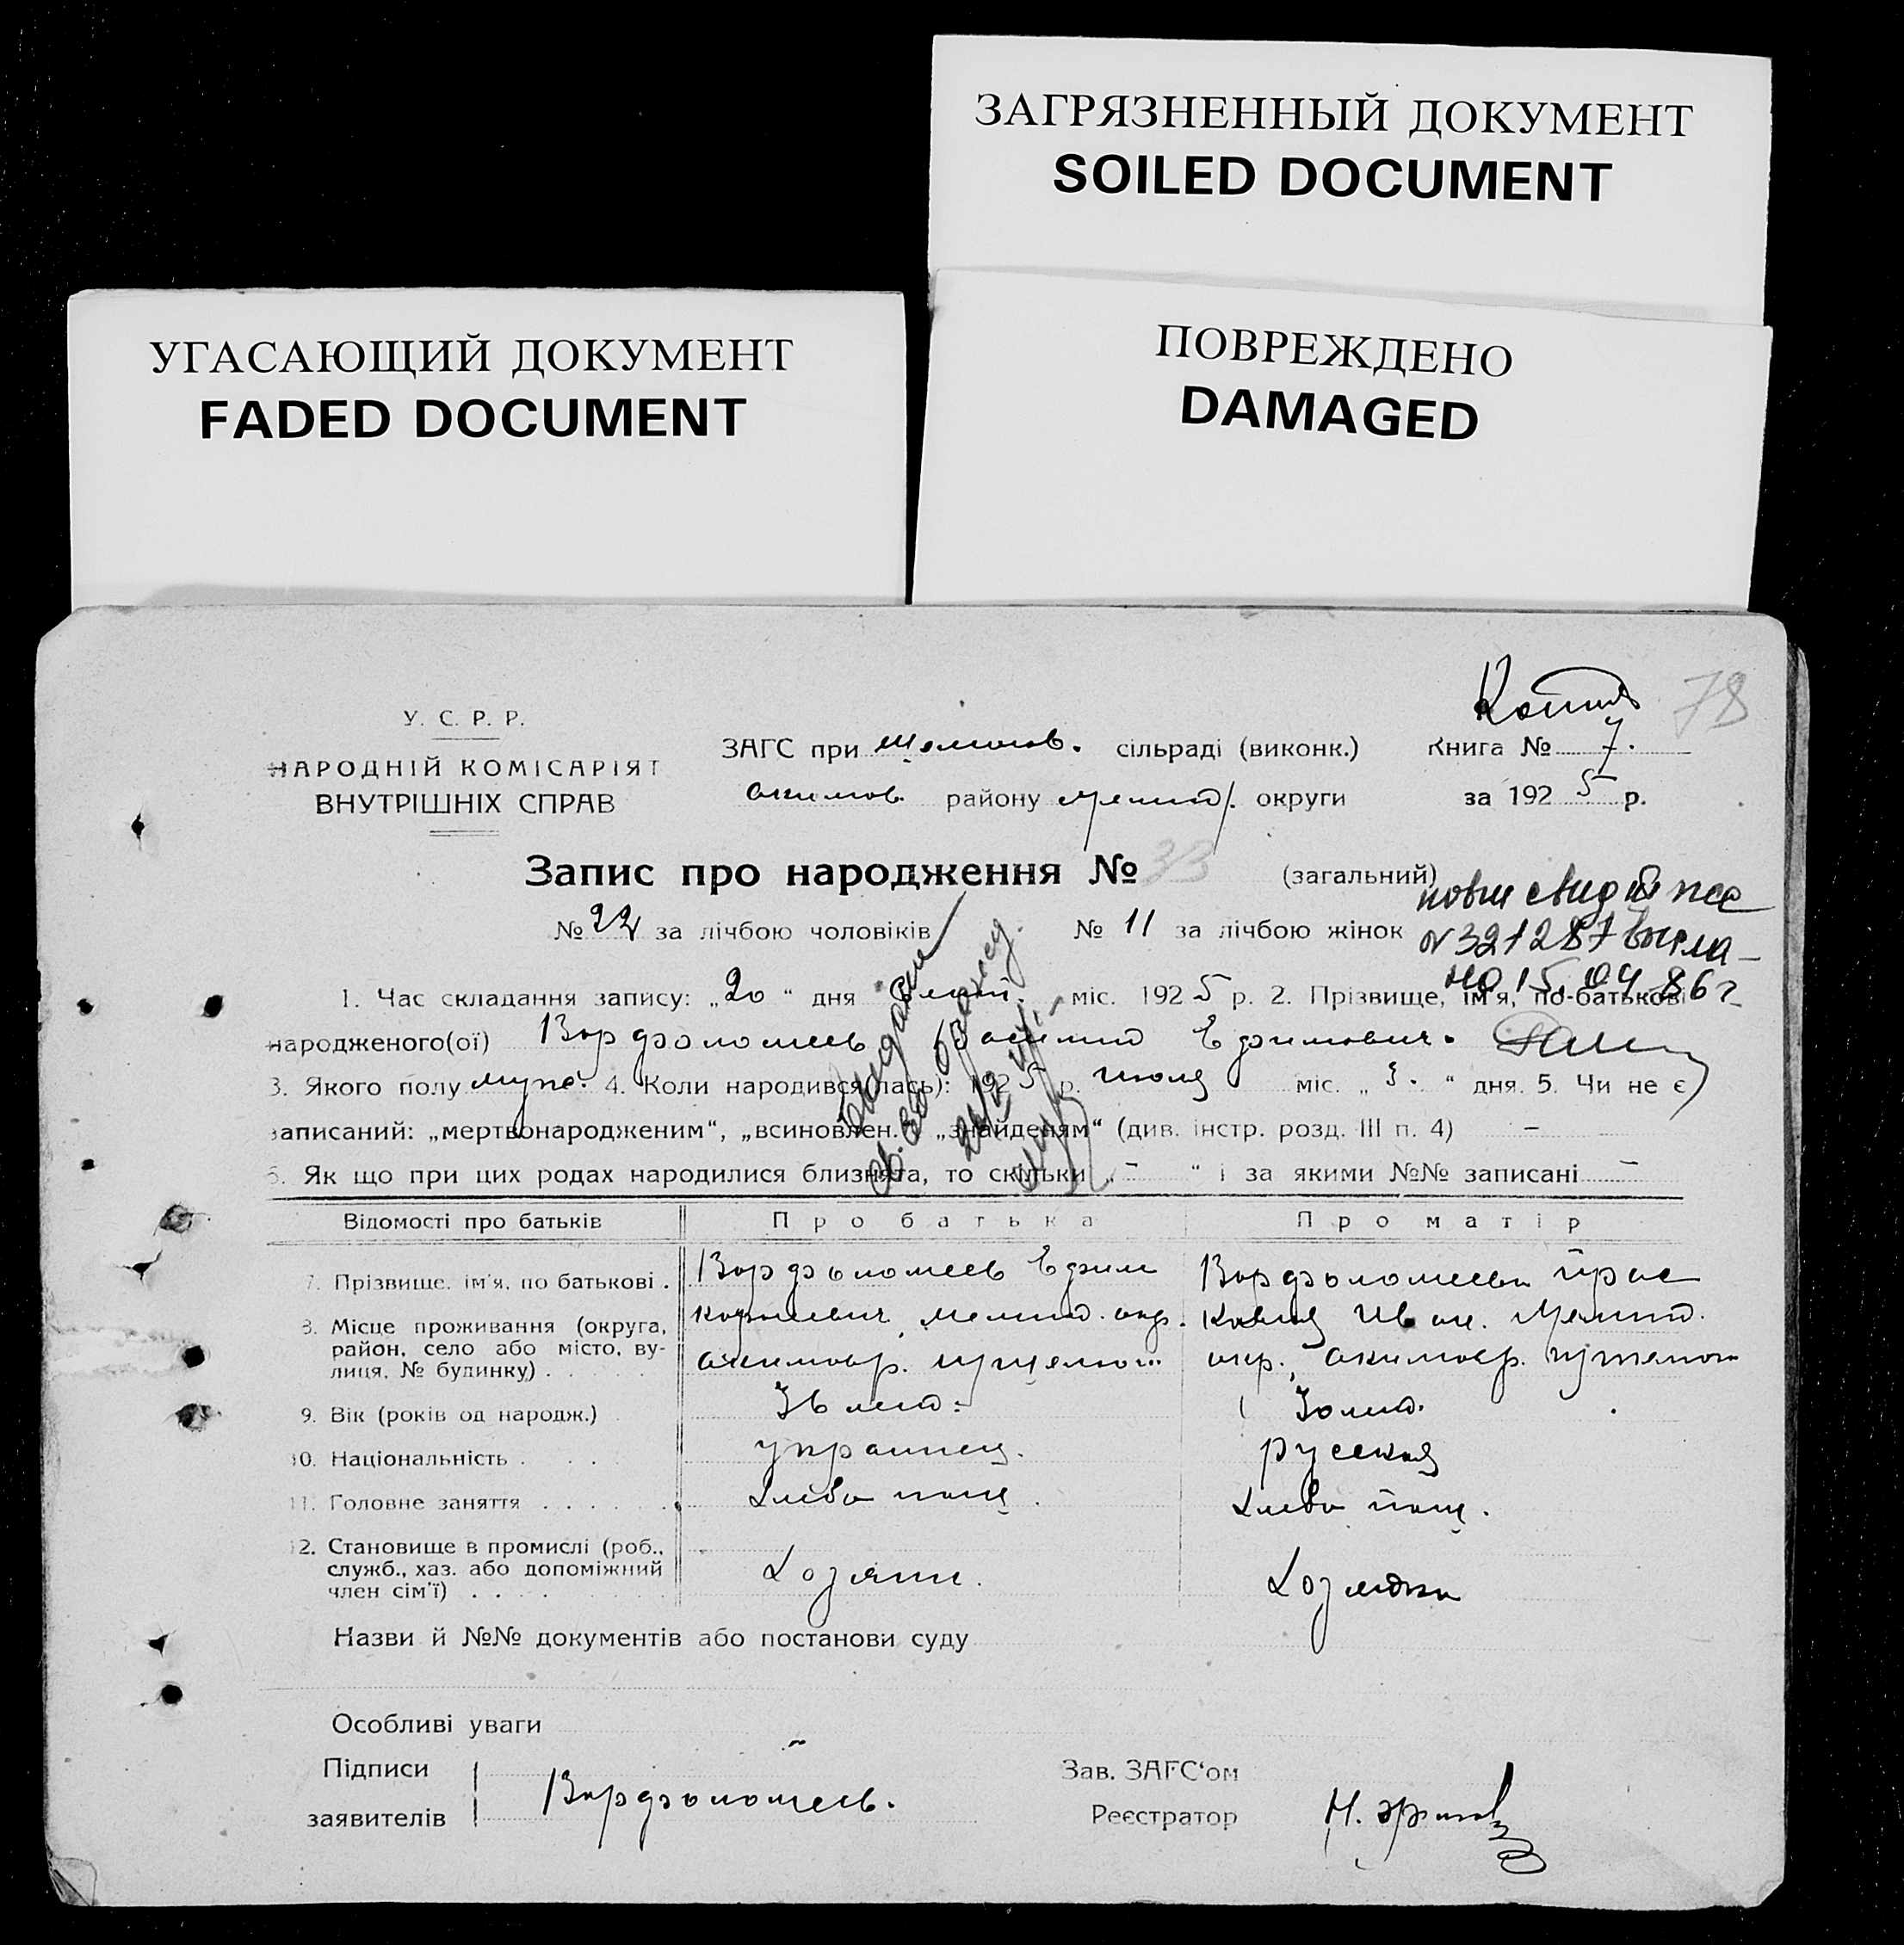 ЗАГРЯЗНЕННЫЙ ДОКУМЕНТ
SOILED DOCUMENT
УГАСАЮЩИЙ ДОКУМЕНТ
FADED DOCUMENT
ПОВРЕЖДЕНО
DAMAGED
Копия 78
У. С. Р. Р.
НАРОДНІЙ КОМІСАРІЯТ
ВНУТРІШНІХ СПРАВ
ЗАГС при сільраді (виконк.) Книга № 7.
акимов. району мелит. округи за 192 5 р.
Запис про народження № 33 (загальний)
№ 22 за лічбою чоловіків № 11 за лічбою жінок
№ 321287
15.04.86 г
1. Час складання запису: „20“ дня міс. 192 5 р. 2. Прізвище, ім'я, по-батькові
народженого(ої) Варфоломеев Василий Ефимович.
3. Якого полу муж. 4. Коли народився(лась): 192 5 р. июля міс. „3.“ дня. 5. Чи не є
записаний: „мертвонародженим“, „всиновлен.“ „знайденям“ (див. інстр. розд. III п. 4) –
6. Як що при цих родах народилися близнята, то скільки „–“ і за якими №№ записані –
Відомості про батьків Про батька Про матір
7. Прізвище, ім'я, по батькові . Варфоломеев Ефим Варфоломеева Прас
8. Місце проживання (округа, район, село або місто, вулиця, № будинку) . Корнеевич, мелит. окр. ковия Иван. Мелит.
акимовр. окр., акимовр.
9. Вік (років од народж.) 36 лет. 30 лет.
10. Національність . украинец. русская
11. Головне заняття . хлебопаш. хлебопаш.
12. Становище в промислі (роб., служб., хаз. або допоміжний член сім'ї) . Хозяин. Хозяйка
Назви й №№ документів або постанови суду
Особливі уваги
Підписи
заявителів Варфоломеев.
Зав. ЗАГС'ом
Реєстратор Н.